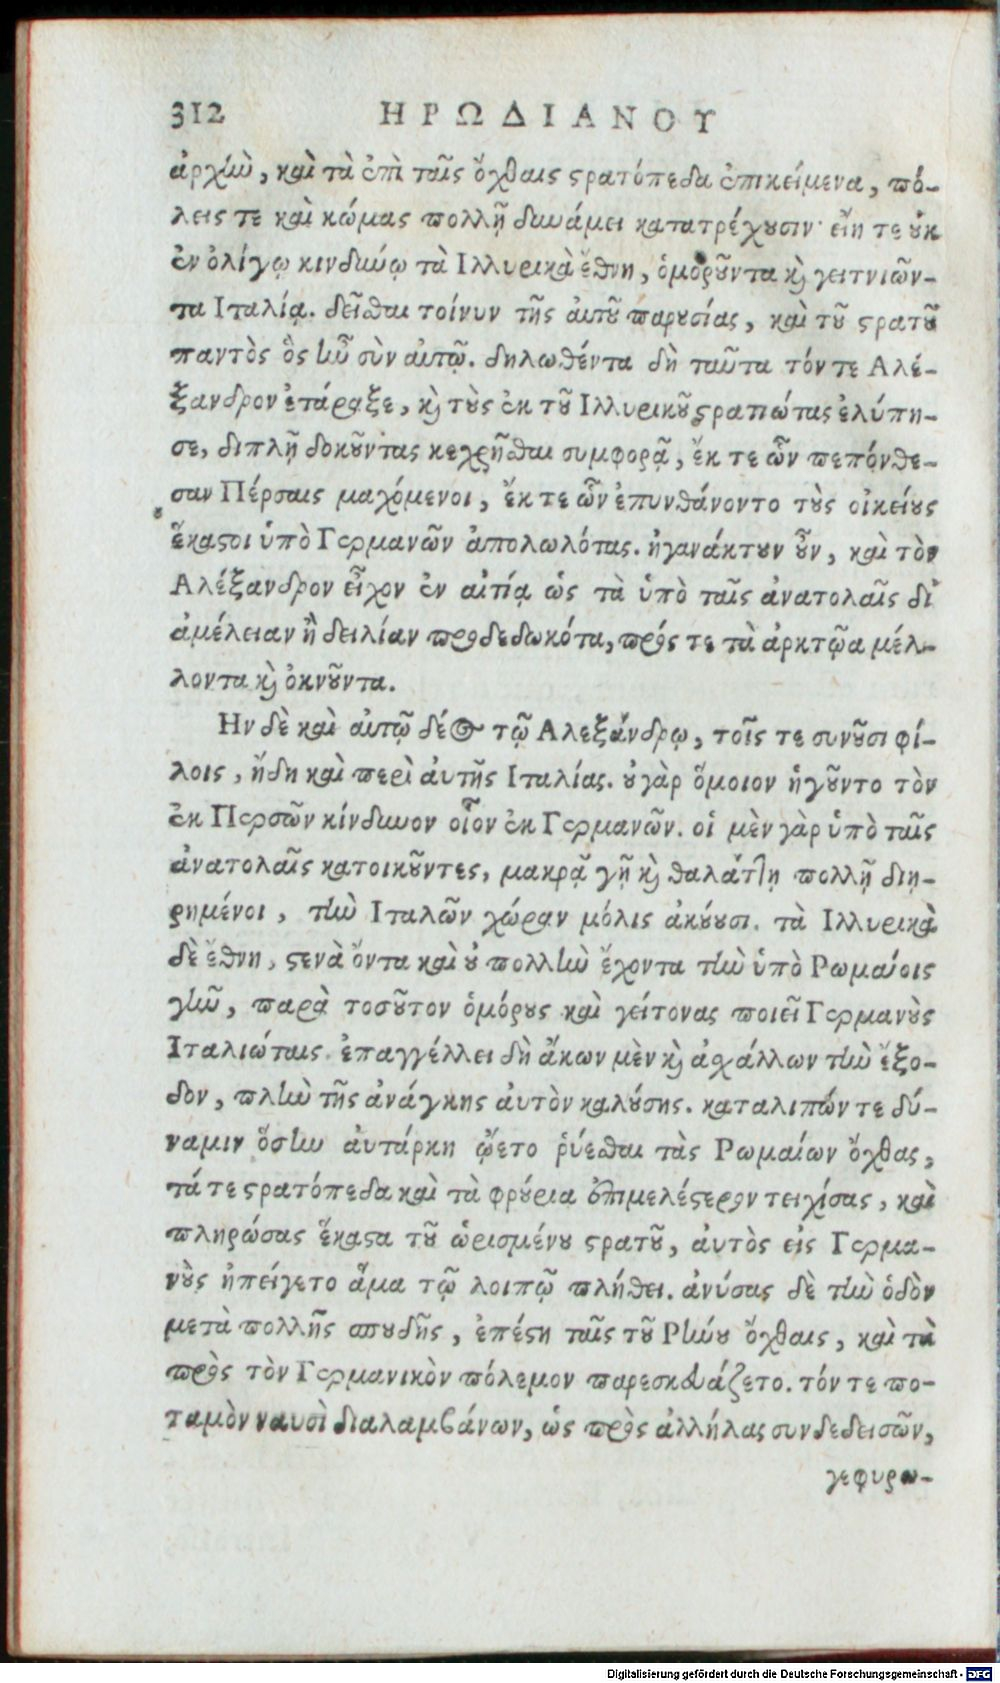 312 ΗΡΩΔΙΑΝΟΥ
ἀρχὴν, καὶ τὰ ἐπὶ ταῖς ὄχθαις στρατόπεδα ἐπικείμενα, πό-
λεις τε καὶ κώμας πολλῇ δυνάμει κατατρέχουσιν· εἴη τε οὐκ
ἐν ὀλίγῳ κινδύνῳ τὰ Ἰλλυρικὰ ἔθνη, ὁμοροῦντα καὶ γειτνιῶν-
τα Ιταλίᾳ. δεῖσθαι τοίνυν τῆς αὐτοῦ παρουσίας, καὶ τοῦ στρατοῦ
παντὸς ὃς ἦν σὺν αὐτῷ. δηλωθέντα δὴ ταῦτα τόν τε Αλέ-
ξανδρον ἐτάραξε, καὶ τοὺς ἐκ τοῦ Ιλλυρικοῦ στρατιώτας ἐλύπη-
σε, διπλῇ δοκοῦντας κεχρῆσθαι συμφορᾷ, ἔκ τε ὧν πεπόνθε-
σαν Πέρσαις μαχόμενοι, ἔκ τε ὧν ἐπυνθάνοντο τοὺς οἰκείους
ἕκαστοι ὑπὸ Γερμανῶν ἀπολωλότας. ἠγανάκτουν οὖν, καὶ τὸν
Αλέξανδρον εἶχον ἐν αἰτίᾳ ὡς τὰ ὑπὸ ταῖς ἀνατολαῖς δι'
ἀμέλειαν ἢ δειλίαν προδεδωκότα, πρός τε τὰ ἀρκτῷα μέλ-
λοντα καὶ ὀκνοῦντα.
Ην δὲ καὶ αὐτῷ δέος τῷ Αλεξάνδρῳ, τοῖς τε συνοῦσι φί-
λοις, ἤδη καὶ περὶ αὐτῆς Ιταλίας. οὐ γὰρ ὅμοιον ἡγοῦντο τὸν
ἐκ Περσῶν κίνδυνον οἷον ἐκ Γερμανῶν. οἱ μὲν γὰρ ὑπὸ ταῖς
ἀνατολαῖς κατοικοῦντες, μακρᾷ γῇ καὶ θαλάττῃ πολλῇ διῃ-
ρημένοι, τὴν Ιταλῶν χώραν μόλις ἀκούουσι. τὰ Ιλλυρικὰ
δὲ ἔθνη, στενὰ ὄντα καὶ οὐ πολλὴν ἔχοντα τὴν ὑπὸ Ρωμαίοις
γῆν, παρὰ τοσοῦτον ὁμόρους καὶ γείτονας ποιεῖ Γερμανοὺς
Ιταλιώταις. ἐπαγγέλλει δὴ ἄκων μὲν καὶ ἀσχάλλων τὴν ἔξο-
δον, πλὴν τῆς ἀνάγκης αὐτὸν καλούσης. καταλιπών τε δύ-
ναμιν ὅσην αὐτάρκη ᾤετο ῥύεσθαι τὰς Ρωμαίων ὄχθας,
τά τε στρατόπεδα καὶ τὰ φρούρια ἐπιμελέστερον τειχίσας, καὶ
πληρώσας ἕκαστα τοῦ ὡρισμένου στρατοῦ, αὐτὸς εἰς Γερμα-
νοὺς ἠπείγετο ἅμα τῷ λοιπῷ πλήθει. ἀνύσας δὲ τὴν ὁδὸν
μετὰ πολλῆς σπουδῆς, ἐπέστη ταῖς τοῦ Ρήνου ὄχθαις, καὶ τὰ
πρὸς τὸν Γερμανικὸν πόλεμον παρεσκευάζετο. τόν τε πο-
ταμὸν ναυσὶ διαλαμβάνων, ὡς πρὸς ἀλλήλας συνδεδεισῶν,
γεφυρω-
Digitalisierung gefördert durch die Deutsche Forschungsgemeinschaft - DFG